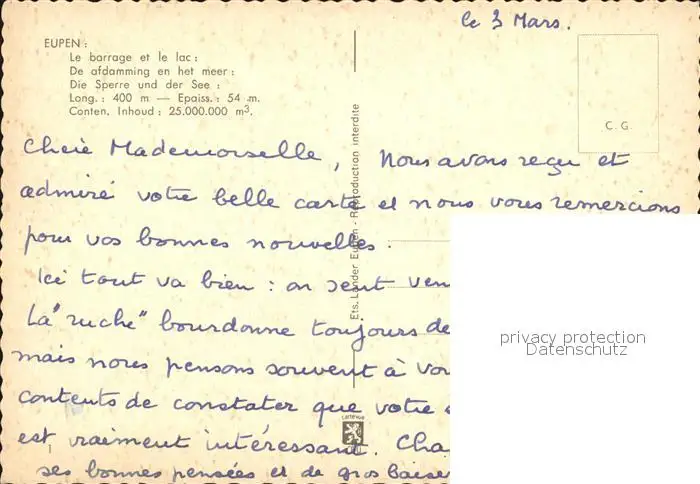 le 3 Mars.
EUPEN :
Le barrage et le lac :
De afdamming en het meer :
Die Sperre und der See :
Long. : 400 m — Epaiss. : 54 m.
Conten. Inhoud : 25.000.000 m³.
C. G.
Ets. Lander Eupen - Reproduction interdite
Chère Mademoiselle, Nous avons reçu et
admiré votre belle carte et nous vous remercions
pour vos bonnes nouvelles.
Ici tout va bien : on sent
La "ruche" bourdonne toujours
mais nous pensons souvent à
contents de constater que votre
est vraiment intéressant.
ses bonnes pensées et de gros
privacy protection
Datenschutz